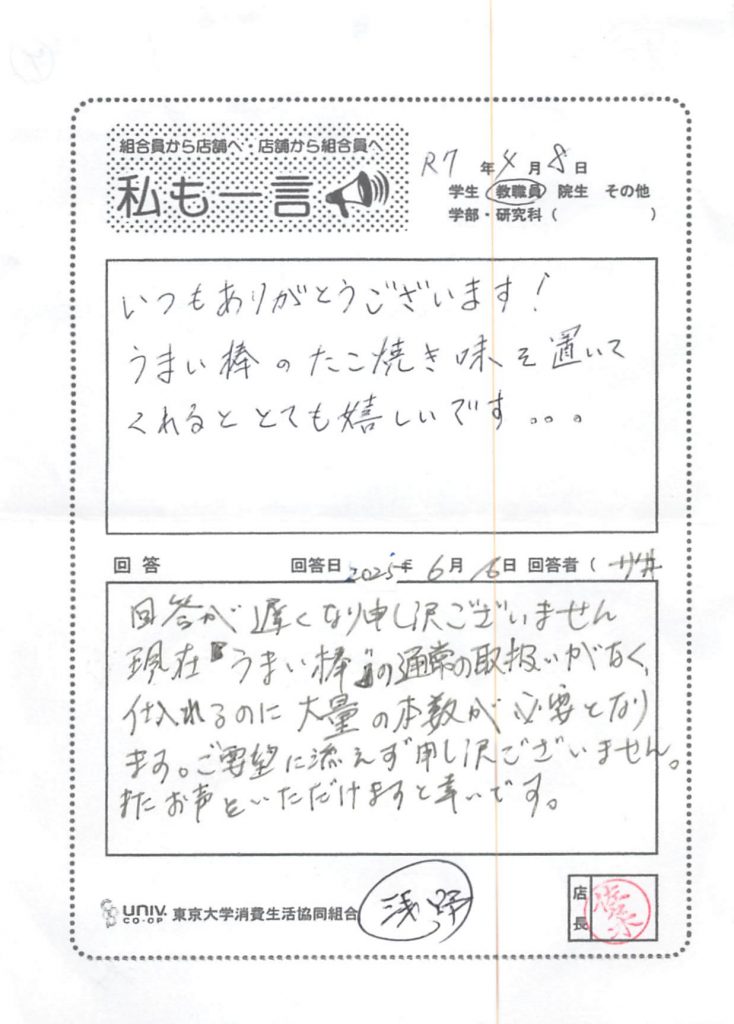 組合員から店舗へ・店舗から組合員へ
私も一言
R7年4月8日
学生 教職員 院生 その他
学部・研究科( )
いつもありがとうございます!
うまい棒のたこ焼き味を置いて
くれるととても嬉しいです...
回答 回答日 2025年6月16日 回答者(
回答が遅くなり申し訳ございません
現在『うまい棒』の通常の取扱いがなく、
仕入れるのに大量の本数が必要となり
ます。ご要望に添えず申し訳ございません。
またお声をいただけますと幸いです。
UNIV. CO-OP 東京大学消費生活協同組合 浅野
店長